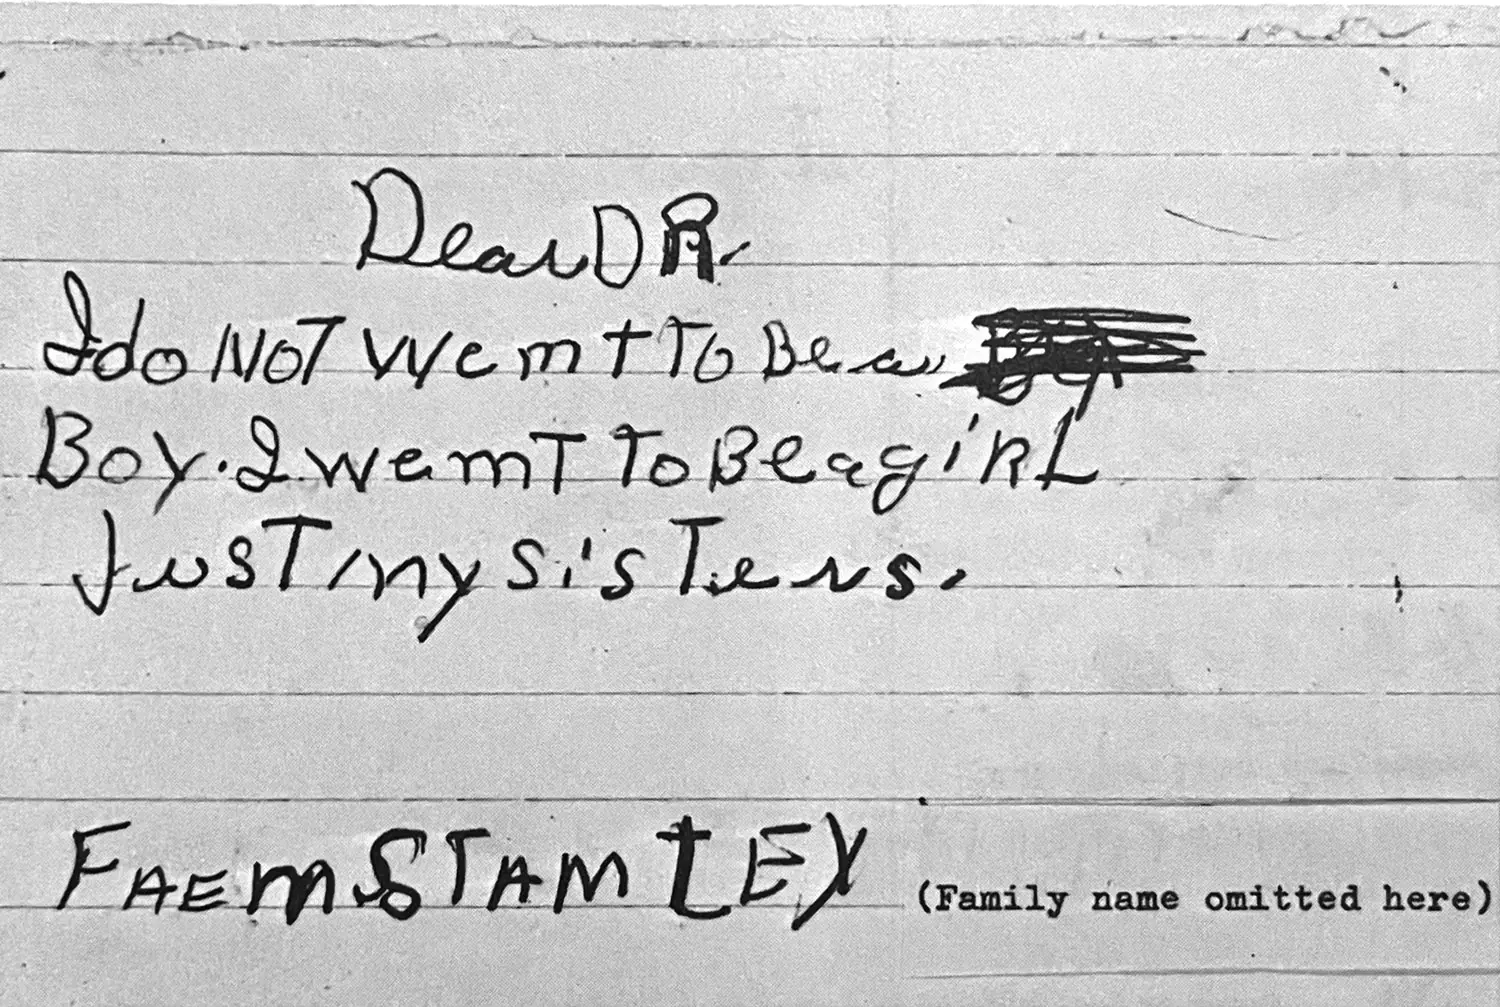 Dear DR.
I do NOT wemt To Be a
Boy. I wemT To Be a girL
JusT my sisTers.
FAEm STAMLEY (Family name omitted here)